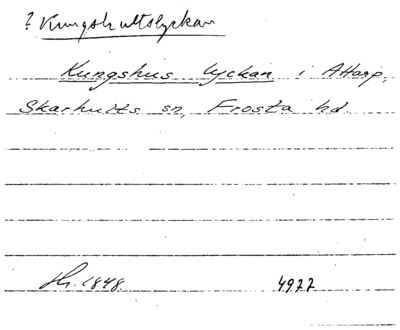 ? Kungshultslyckan
Kungshus lyckan i Attarp,
Skarhults sn, Frosta hd.
Hr. 1848. 4922